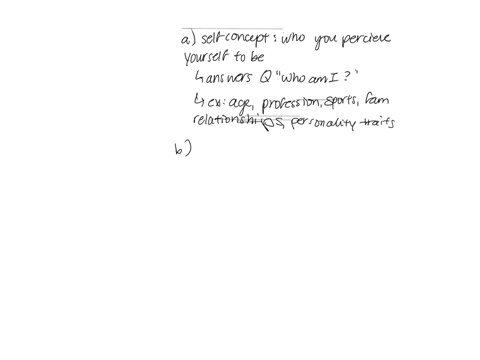 a) self concept: who you percieve
yourself to be
↳ answers Q "who am I?"
↳ ex: age, profession, sports, fam
relationships, personality traits
b)